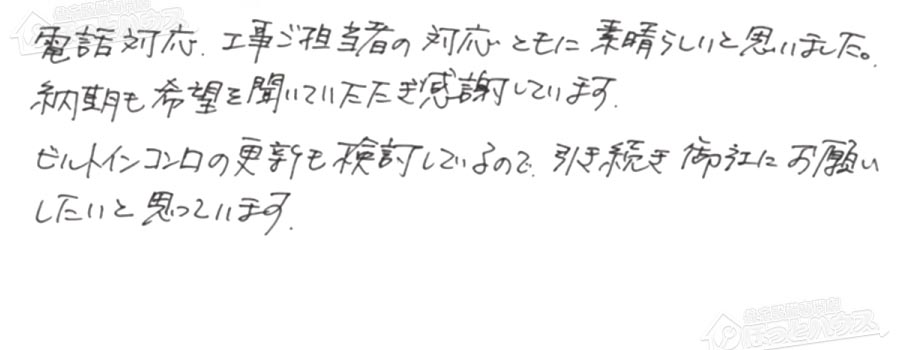 電話対応、工事ご担当者の対応ともに素晴らしいと思いました。
納期も希望を聞いていただき感謝しています。
ビルトインコンロの更新も検討しているので、引き続き御社にお願い
したいと思っています。
ほっとハウス